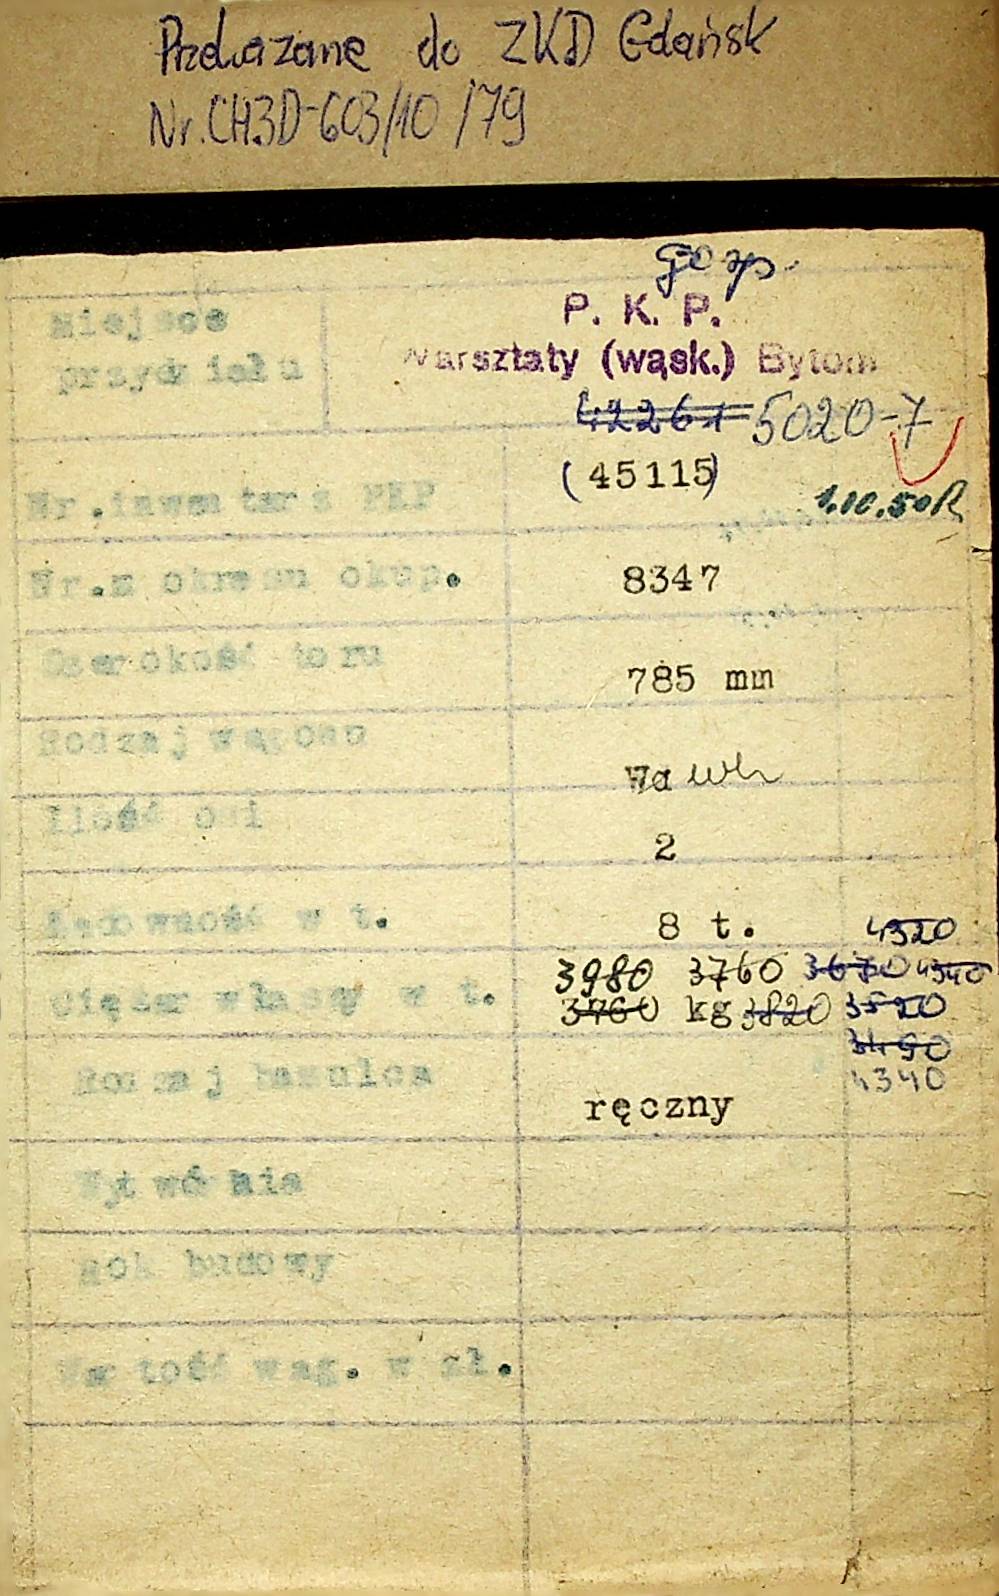 Przekazane do ZKD Gdańsk
Nr.CH3D-603/10/79
gosp.
Miejsce P. K. P.
przydziału Warsztaty (wąsk.) Bytom
42261 5020-7
(45115)
Nr.inwentarz PKP 1.10.50R
Nr.z okresu okup. 8347
Szerokość toru 785 mm
Rodzaj wagonu Wa Wh
Ilość osi 2
Ładowność w t. 8 t. 4320
3980 3760 3670 4340
Ciężar własny w t. 3760 kg 3820 3520
3490
4340
Rodzaj hamulca ręczny
Wytwórnia
Rok budowy
Wartość wag. w zł.